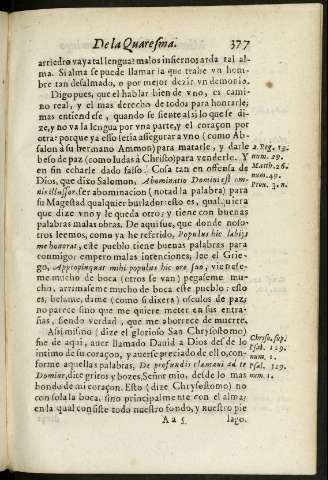 De la Quaresma. 377
arriedro vaya tal lengua: malos infiernos arda tal al
ma. Si alma se puede llamar la que trahe vn hom
bre tan desalmado, o por mejor dezir vn demonio.
Digo pues, que el hablar bien de vno, es cami
no real, y el mas derecho de todos para honrarle,
mas entiendese, quando se siente assi lo que se di
ze, y no va la lengua por vna parte, y el coraçon por
otra: porque ya esso seria assegurar a vno (como Ab-
salon à su hermano Ammon) para matarle, y darle
beso de paz (como Iudas à Christo) para venderle. Y
en fin echarle dado falso. Cosa tan en offensa de
Dios, que dixo Salomon, Abominatio Domini est om-
nis illusor. Ser abominacion (notad la palabra) para
su Magestad qualquier burlador: esto es, qualquiera
que dize vno y le queda otro; y tiene con buenas
palabras malas obras. De aqui fue, que donde noso-
tros leemos, como ya he referido, Populus hic labijs
me honorat, este pueblo tiene buenas palabras para
conmigo: empero malas intenciones, lee el Grie-
go, Appropinquat mihi populus hic ore suo, vienese-
me mucho de boca (otros se van) pegaseme mu-
cho, arrimaseme mucho de boca este pueblo: esto
es, besame, dame (como si dixera) osculos de paz;
no parece sino que me quiere meter en sus entra-
ñas, siendo verdad, que me aborrece de muerte.
Assimismo (dize el glorioso San Chrysostomo)
fue de aqui, auer llamado Dauid a Dios desde lo
intimo de su coraçon, y auerse preciado de ello, con-
forme aquellas palabras, De profundis clamaui ad te
Domine, dite gritos y bozes, Señor mio, desde lo mas
hondo de mi coraçon. Esto (dize Chrysostomo) no
con sola la boca, sino principalmente con el alma;
en la qual consiste todo nuestro fondo, y nuestro pie
A a 5 lago.
2. Reg. 13.
num. 29.
Matth. 26.
num. 49.
Prou. 3. n.
Chryso. sup.
Psal. 129.
num. 1.
Psal. 129.
num. 1.